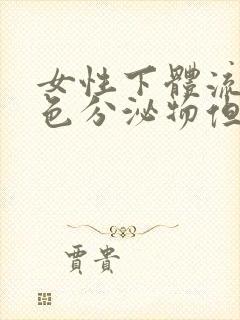 女性下體流
色分泌物但
賈貴